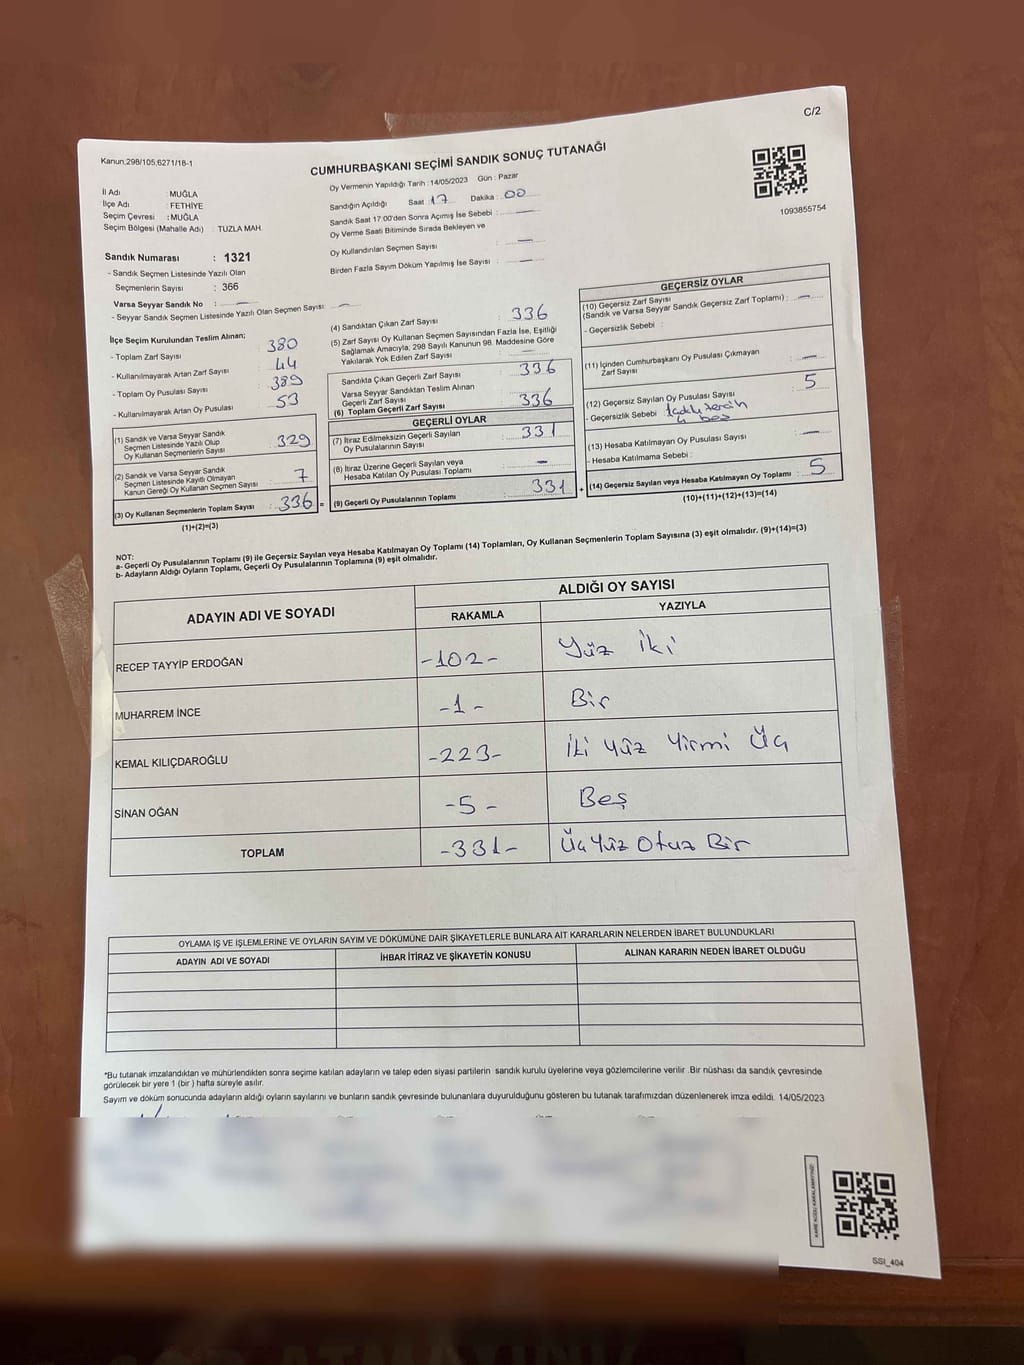 C/2
Kanun,298/105,6271/18-1
CUMHURBAŞKANI SEÇİMİ SANDIK SONUÇ TUTANAĞI
Oy Vermenin Yapıldığı Tarih : 14/05/2023 Gün : Pazar
İl Adı : MUĞLA
İlçe Adı : FETHİYE
Seçim Çevresi : MUĞLA
Seçim Bölgesi (Mahalle Adı) : TUZLA MAH.
Sandığın Açıldığı Saat 17 Dakika : 00
Sandık Saat 17:00'den Sonra Açımış İse Sebebi : —
Oy Verme Saati Bitiminde Sırada Bekleyen ve
Oy Kullandırılan Seçmen Sayısı —
Birden Fazla Sayım Döküm Yapılmış İse Sayısı : —
1093855754
Sandık Numarası : 1321
- Sandık Seçmen Listesinde Yazılı Olan
Seçmenlerin Sayısı : 366
Varsa Seyyar Sandık No : —
- Seyyar Sandık Seçmen Listesinde Yazılı Olan Seçmen Sayısı : —
İlçe Seçim Kurulundan Teslim Alınan;
- Toplam Zarf Sayısı 380
- Kullanılmayarak Artan Zarf Sayısı : 44
- Toplam Oy Pusulası Sayısı 389
- Kullanılmayarak Artan Oy Pusulası 53
(1) Sandık ve Varsa Seyyar Sandık
Seçmen Listesinde Yazılı Olup
Oy Kullanan Seçmenlerin Sayısı : 329
(2) Sandık ve Varsa Seyyar Sandık
Seçmen Listesinde Kayıtlı Olmayan
Kanun Gereği Oy Kullanan Seçmen Sayısı : 7
(3) Oy Kullanan Seçmenlerin Toplam Sayısı : 336 =
(1)+(2)=(3)
(4) Sandıktan Çıkan Zarf Sayısı : 336
(5) Zarf Sayısı Oy Kullanan Seçmen Sayısından Fazla İse, Eşitliği
Sağlamak Amacıyla, 298 Sayılı Kanunun 98. Maddesine Göre
Yakılarak Yok Edilen Zarf Sayısı : —
Sandıkta Çıkan Geçerli Zarf Sayısı : 336
Varsa Seyyar Sandıktan Teslim Alınan
Geçerli Zarf Sayısı
(6) Toplam Geçerli Zarf Sayısı : 336
GEÇERLİ OYLAR
(7) İtiraz Edilmeksizin Geçerli Sayılan
Oy Pusulalarının Sayısı : 331
(8) İtiraz Üzerine Geçerli Sayılan veya
Hesaba Katılan Oy Pusulası Toplamı : —
(9) Geçerli Oy Pusulalarının Toplamı : 331 +
GEÇERSİZ OYLAR
(10) Geçersiz Zarf Sayısı
(Sandık ve Varsa Seyyar Sandık Geçersiz Zarf Toplamı) : —
- Geçersizlik Sebebi :
(11) İçinden Cumhurbaşkanı Oy Pusulası Çıkmayan
Zarf Sayısı : —
(12) Geçersiz Sayılan Oy Pusulası Sayısı : 5
- Geçersizlik Sebebi
(13) Hesaba Katılmayan Oy Pusulası Sayısı : —
- Hesaba Katılmama Sebebi :
(14) Geçersiz Sayılan veya Hesaba Katılmayan Oy Toplamı : 5
(10)+(11)+(12)+(13)=(14)
NOT:
a- Geçerli Oy Pusulalarının Toplamı (9) ile Geçersiz Sayılan veya Hesaba Katılmayan Oy Toplamı (14) Toplamları, Oy Kullanan Seçmenlerin Toplam Sayısına (3) eşit olmalıdır. (9)+(14)=(3)
b- Adayların Aldığı Oyların Toplamı, Geçerli Oy Pusulalarının Toplamına (9) eşit olmalıdır.
ADAYIN ADI VE SOYADI ALDIĞI OY SAYISI
RAKAMLA YAZIYLA
RECEP TAYYİP ERDOĞAN -102- Yüz İki
MUHARREM İNCE -1- Bir
KEMAL KILIÇDAROĞLU -223- İki Yüz Yirmi Üç
SİNAN OĞAN -5- Beş
TOPLAM -331- Üç Yüz Otuz Bir
OYLAMA İŞ VE İŞLEMLERİNE VE OYLARIN SAYIM VE DÖKÜMÜNE DAİR ŞİKAYETLERLE BUNLARA AİT KARARLARIN NELERDEN İBARET BULUNDUKLARI
ADAYIN ADI VE SOYADI İHBAR İTİRAZ VE ŞİKAYETİN KONUSU ALINAN KARARIN NEDEN İBARET OLDUĞU
*Bu tutanak imzalandıktan ve mühürlendikten sonra seçime katılan adayların ve talep eden siyasi partilerin sandık kurulu üyelerine veya gözlemcilerine verilir. Bir nüshası da sandık çevresinde
görülecek bir yere 1 (bir) hafta süreyle asılır.
Sayım ve döküm sonucunda adayların aldığı oyların sayılarını ve bunların sandık çevresinde bulunanlara duyurulduğunu gösteren bu tutanak tarafımızdan düzenlenerek imza edildi. 14/05/2023
SSI_404